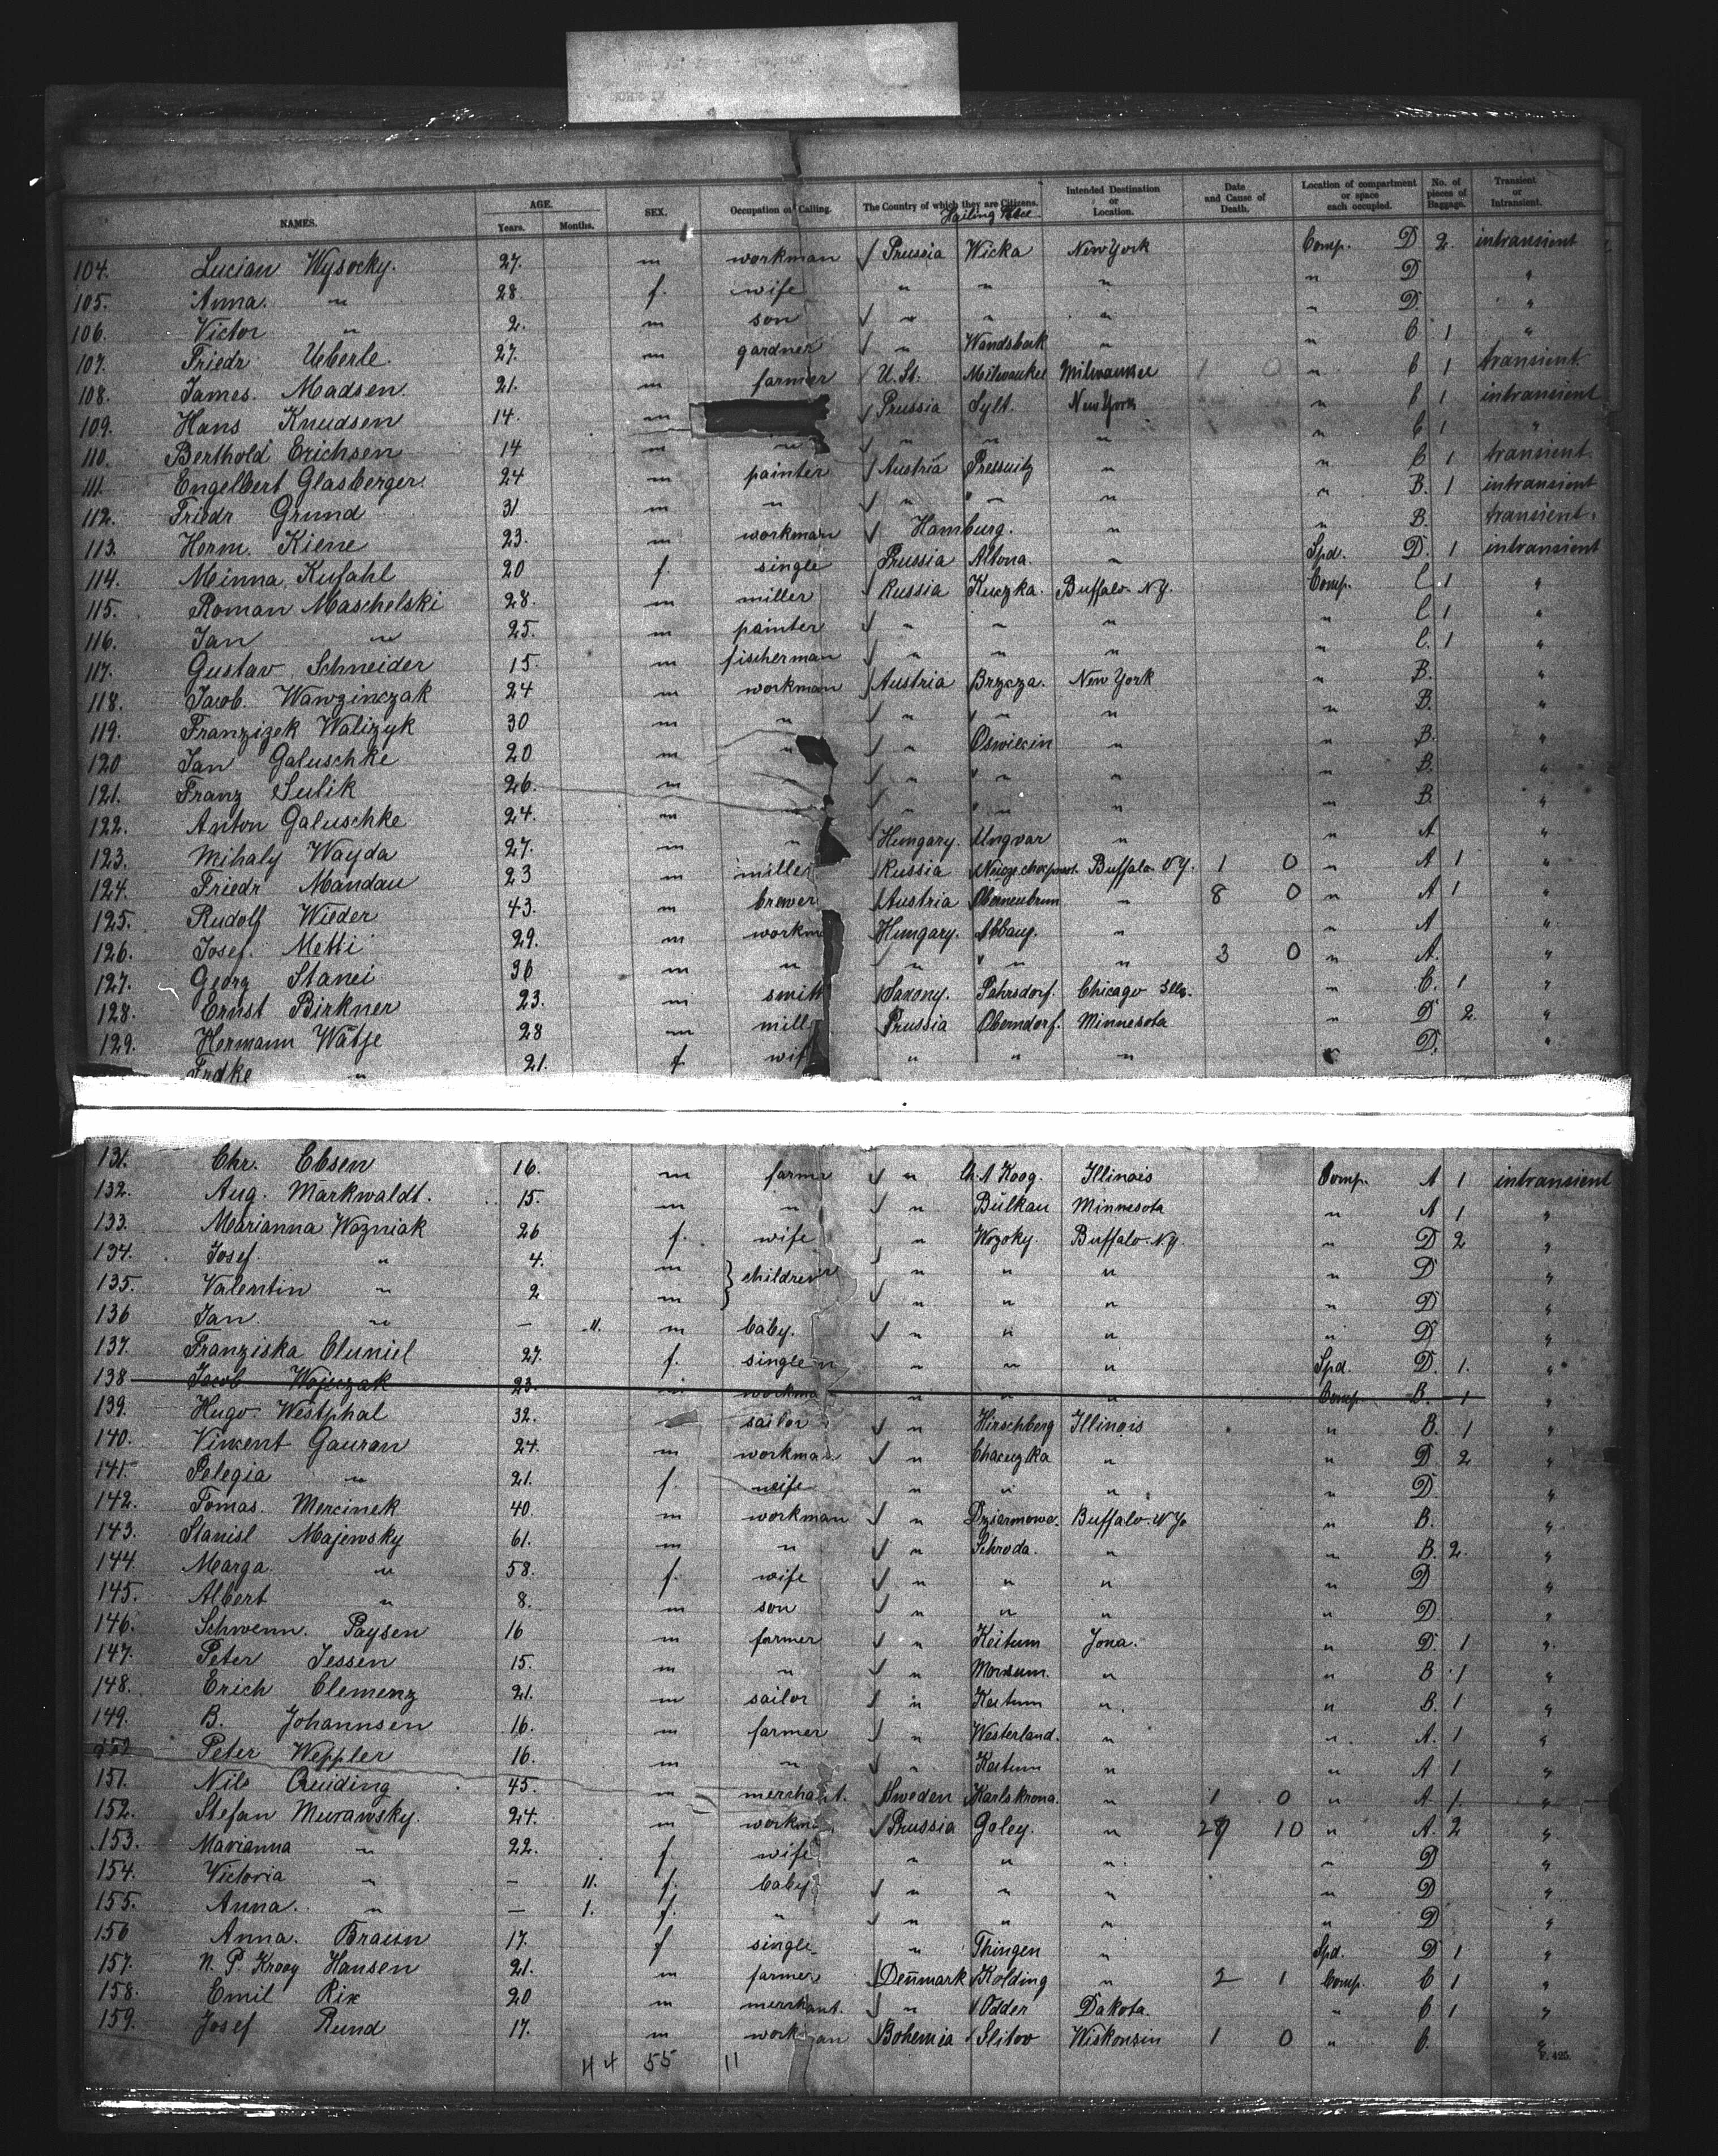 NAMES. AGE. Years. Months. SEX. Occupation or Calling. The Country of which they are Citizens. Hailing Place Intended Destination or Location. Date and Cause of Death. Location of compartment or space each occupied. No. of pieces of Baggage. Transient or Intransient.
104. Lucian Wysocky. 27. m workman √ Prussia Wicka New York Comp. D 2. intransient
105. Anna. " 28 f. wife " " " " D "
106. Victor " 2. m son √ " " " " D. "
107. Friedr Ueberle. 27. m gardner √ " Wandsbeck " " C 1 "
108. James. Madsen. 21. m farmer √ U. St. Milwaukee Milwaukee 1 0 " C 1 transient
109. Hans Knudsen 14. m √ Prussia Sylt. New York " C 1 intransient
110. Berthold Erichsen 14 m " √ " " " " C 1 "
111. Engelbert Glasberger. 24 m painter √ Austria Pressnitz " " B 1 transient.
112. Friedr Grund 31. m " √ " " " " B. 1 intransient
113. Herm. Kiene 23. m workman √ Hamburg. " " B. transient.
114. Minna Kufahl 20 f. single Prussia Altona. " Spd. D. 1 intransient
115. Roman Maschelski 28. m miller √ Russia Kuczka. Buffalo N.Y. Comp. C 1 "
116. Jan " 25. m painter √ " " " " C 1 "
117. Gustav Schneider 15. m fischerman √ " " " " C. 1 "
118. Jacob. Wawzinczak 24 m workman √ Austria Brzcza. New York " B. "
119. Franzizek Walizyk 30 m " √ " " " " B. "
120 Jan Galuschke 20 m " √ " Oswiecin " " B. "
121. Franz Sulik 26. m √ " " " " B. "
122. Anton Galuschke 24. m √ " " " " B. "
123. Mihaly Wayda 27. m " √ Hungary. Ungvar " " A "
124. Friedr Mandau 23 m miller √ Russia Buffalo. N.Y. 1 0 " A 1 "
125. Rudolf Wieder 43. m brewer √ Austria Oberneubrun " 8 0 " A 1 "
126. Josef. Metti 29. m workm √ Hungary. Abbauj. " " A "
127. Georg Stanei 36 m " √ " " " 3 0 " A. "
128. Ernst Birkner 23. m smitt √ Saxony. Pahrsdorf. Chicago Ills. " C. 1 "
129. Hermann Wätje 28 m mill √ Prussia Oberndorf. Minnesota " D 2 "
Frdke " 21. f wif " " " " D. "
131. Chr. Ebsen 16. m farmr √ " Ch. A Koog. Illinois Comp. A 1 intransient
132. Aug. Markwaldt. 15. m " √ " Bülkau Minnesota " A 1 "
133. Marianna Wozniak 26 f. wife " Wozoky. Buffalo. N.Y. " D 2 "
134. Josef. " 4. m } children √ " " " " D "
135. Valentin " 2 m √ " " " " D "
136 Jan. " — 11. m baby. √ " " " " D "
137. Franziska Cluniel 27. f. single " " " " Spd. D. 1. "
138 Jacob Wojuzak 23. m workma " " " Comp. B. 1 "
139. Hugo. Westphal 32. sailor √ " Hirschberg Illinois " B. 1 "
140. Vincent Gauran 24. m workman. √ " Chaceyka " " D 2 "
141. Pelegia " 21. f. wife " " " " D "
142. Tomas. Mercinek 40. m workman √ " Dziarmowo. Buffalo. N.Y. " B. "
143. Stanisl Majewsky 61. m " √ " Schroda. " " B. 2. "
144. Marga " 58. f. wife √ " " " " D "
145. Albert " 8. m son √ " " " " D "
146. Schwenn. Paysen 16 m farmer √ " Keitum Jona. " D. 1 "
147. Peter Jessen 15. m " √ " Morsum. " " B 1 "
148. Erich Clemenz 21. m sailor √ " Keitum " " B. 1 "
149. B. Johannsen 16. m farmer √ " Westerland. " " A. 1 "
150 Peter Weppler 16. m " √ " Keitum " " A 1 "
151. Nils Quiding 45. m merchant. √ Sweden Karlskrona. " 1 0 " A 1. "
152. Stefan Murawsky. 24. m workm √ Prussia Goley. " 29 10 " A. 2 "
153. Marianna " 22. f. wife " " " " D "
154. Victoria " — 11. f. baby √ " " " " D "
155. Anna. " — 1. f. " √ " " " " D "
156 Anna. Braun 17. f single " Thingen " Spd. D 1 "
157. N. P. Kroog Hansen 21. m farmer √ Denmark √ Kolding " 2 1 Comp. C 1 "
158. Emil Rix 20 m merchant. √ " √ Odder Dakota. " C 1 "
159. Josef Rund 17. m workman √ Bohemia √ Slitov Wiskonsin 1 0 " C. "
44 55 11
F. 425.